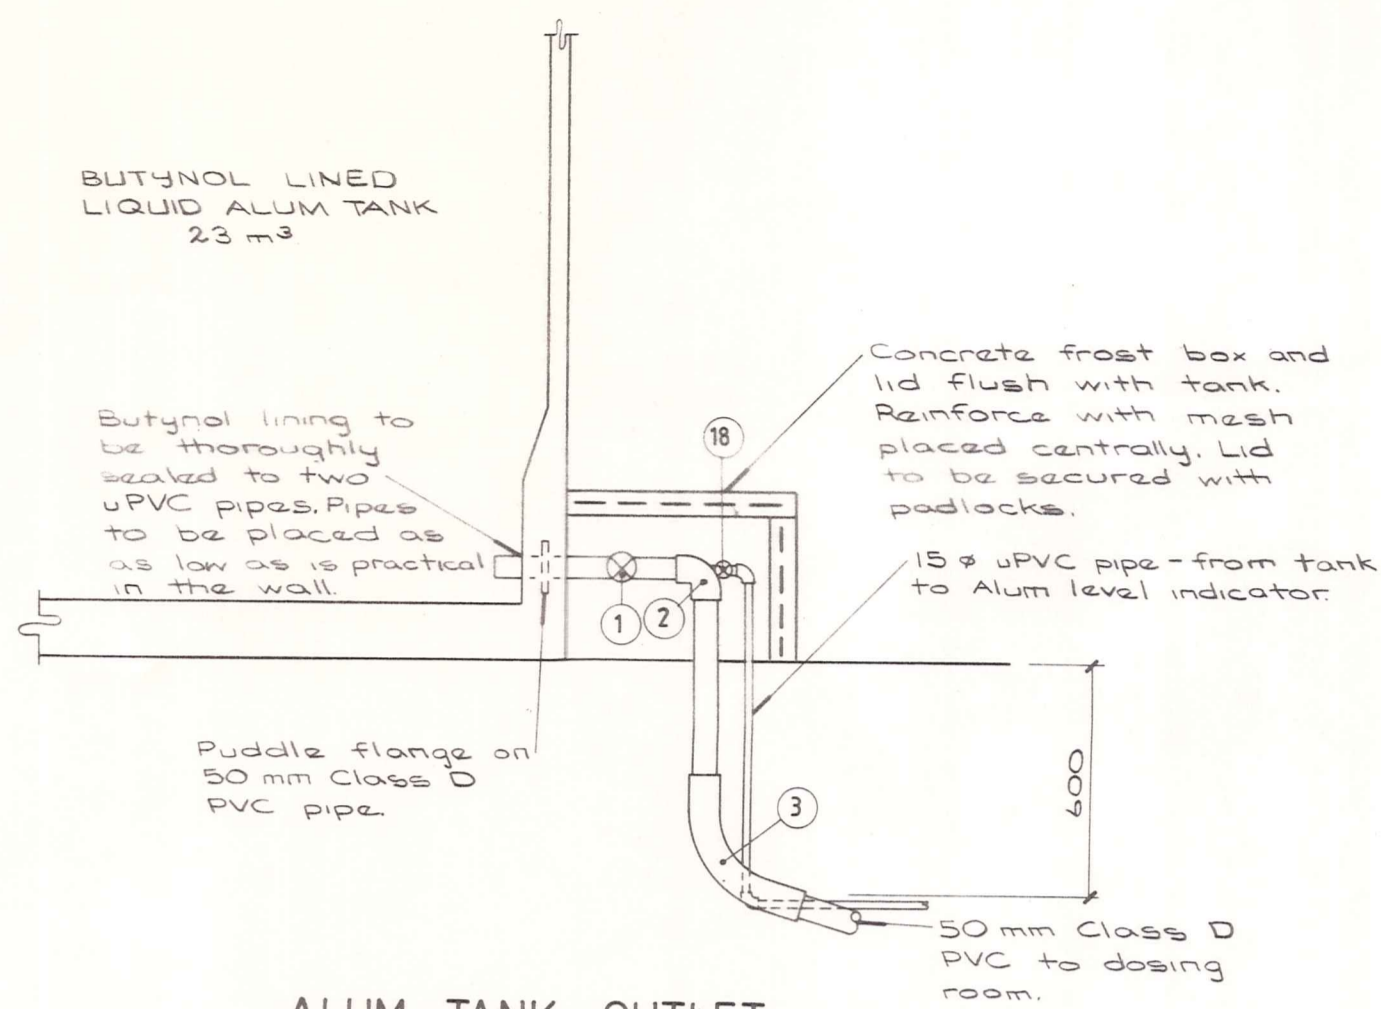 BUTYNOL LINED
LIQUID ALUM TANK
23 m³
Butynol lining to
be thoroughly
sealed to two
uPVC pipes. Pipes
to be placed as
as low as is practical
in the wall.
Concrete frost box and
lid flush with tank.
Reinforce with mesh
placed centrally. Lid
to be secured with
padlocks.
18
15 ø uPVC pipe - from tank
to Alum level indicator.
1
2
Puddle flange on
50 mm Class D
PVC pipe.
3
600
50 mm Class D
PVC to dosing
room.
ALUM TANK OUTLET